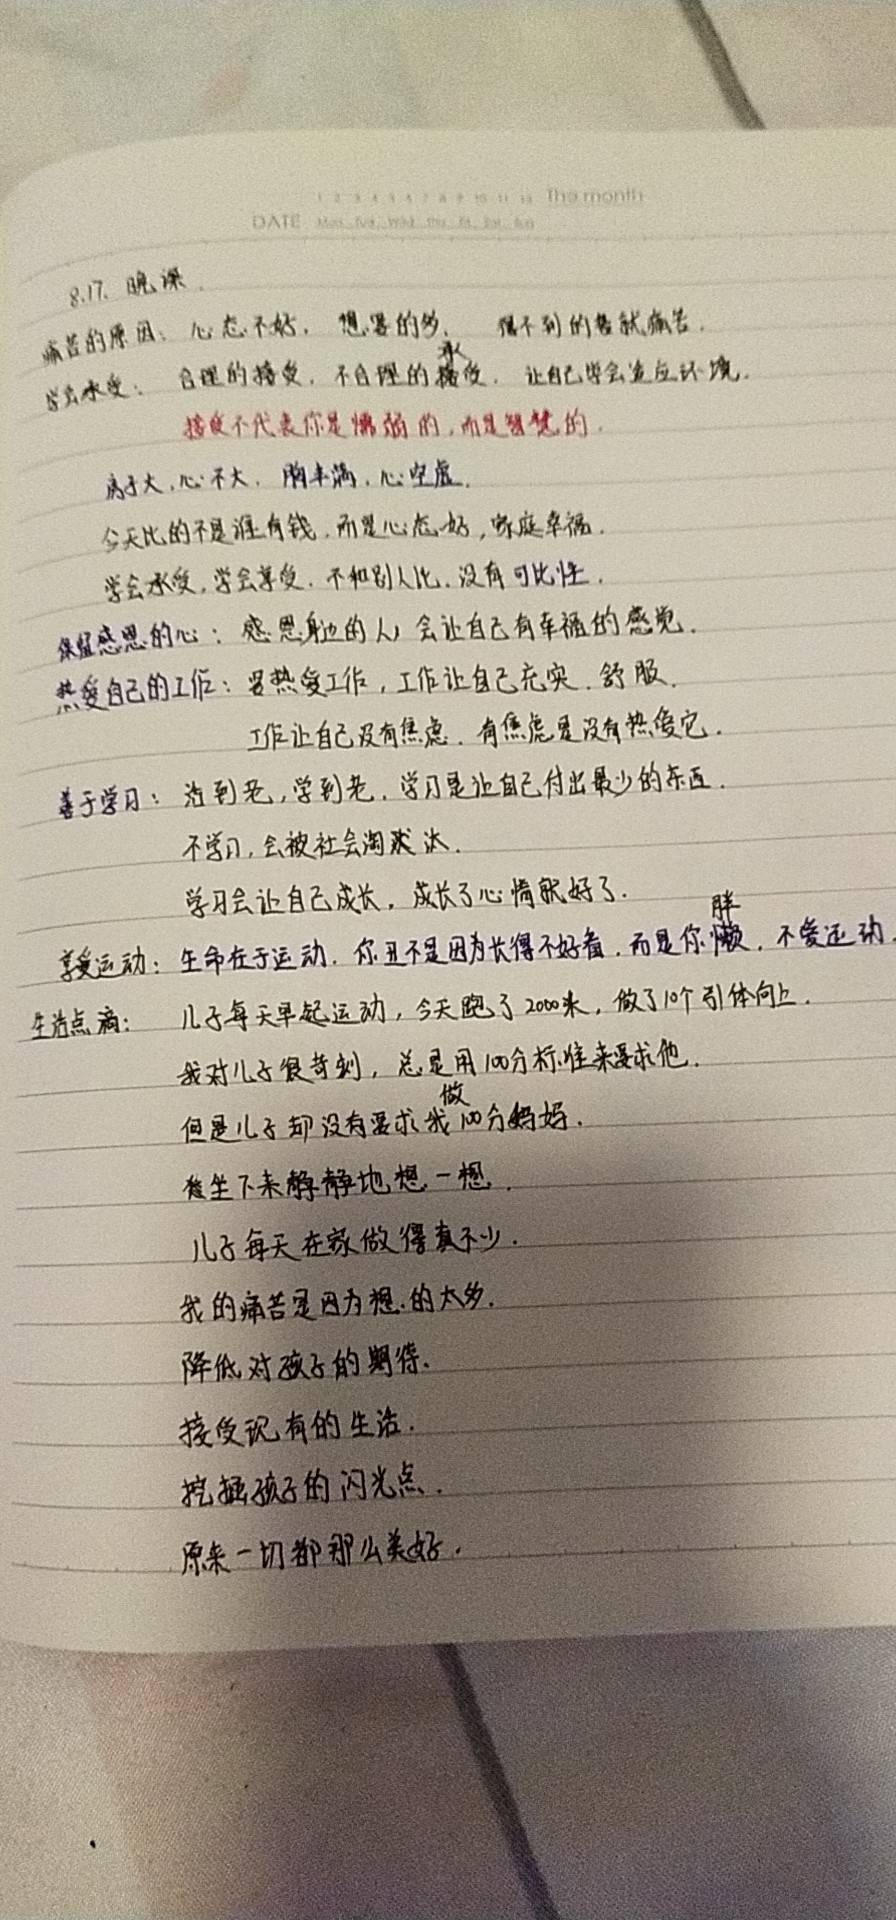 1 2 3 4 5 6 7 8 9 10 11 12 The month
DATE Mon Tue Wed Thu Fri Sat Sun
8.17. 晚课.
痛苦的原因: 心态不好. 想要的多. 得不到的者就痛苦.
学会承受: 合理的接受. 不合理的承受. 让自己学会适应环境.
接受不代表你是懦弱的,而是智慧的.
房子大,心不大. 胸丰满,心空虚.
今天比的不是谁有钱,而是心态好,家庭幸福.
学会承受,学会享受. 不和别人比. 没有可比性.
保留感恩的心: 感恩身边的人,会让自己有幸福的感觉.
热爱自己的工作: 要热爱工作,工作让自己充实. 舒服.
工作让自己没有焦虑. 有焦虑是没有热爱它.
善于学习: 活到老,学到老. 学习是让自己付出最少的东西.
不学习,会被社会淘汰.
学习会让自己成长,成长了心情就好了.
享受运动: 生命在于运动. 你丑不是因为长得不好看,而是你胖懒. 不爱运动.
生活点滴: 儿子每天早起运动,今天跑了2000米,做了10个引体向上.
我对儿子很苛刻,总是用100分标准来要求他.
但是儿子却没有要求我做100分妈妈.
坐下来静静地想一想.
儿子每天在家做得真不少.
我的痛苦是因为想的太多.
降低对孩子的期待.
接受现有的生活.
挖掘孩子的闪光点.
原来一切都那么美好.